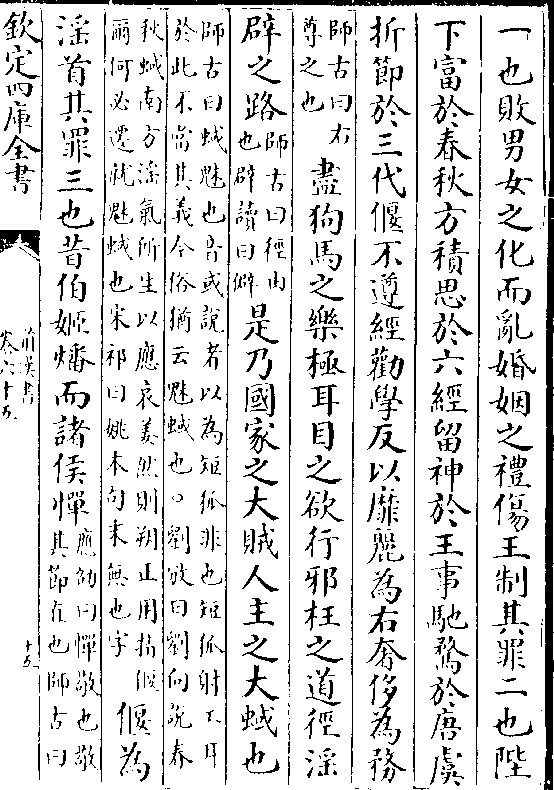 一也敗男女之化而亂婚姻之禮傷王制其罪二也陛
下富於春秋方積思於六經留神於王事馳騖於唐虞
折節於三代偃不遵經勸學反以靡麗為右奢侈為務
師古曰右
尊之也
盡狗馬之樂極耳目之欲行邪枉之道徑淫
辟之路
師古曰徑由
也辟讀曰僻
是乃國家之大賊人主之大蜮也
師古曰蜮魅也音或說者以為短狐非也短狐射工耳
於此不當其義今俗猶云魅蜮也。劉攽曰劉向說春
秋蜮南方淫氣所生以應哀姜然則朔正用指偃
爾何必遷就魅蜮也宋祁曰姚本句末無也字
偃為
淫首其罪三也昔伯姬燔而諸侯憚
應劭曰憚敬也敬
其節直也師古曰
欽定四庫全書
前漢書
卷六十五
十五